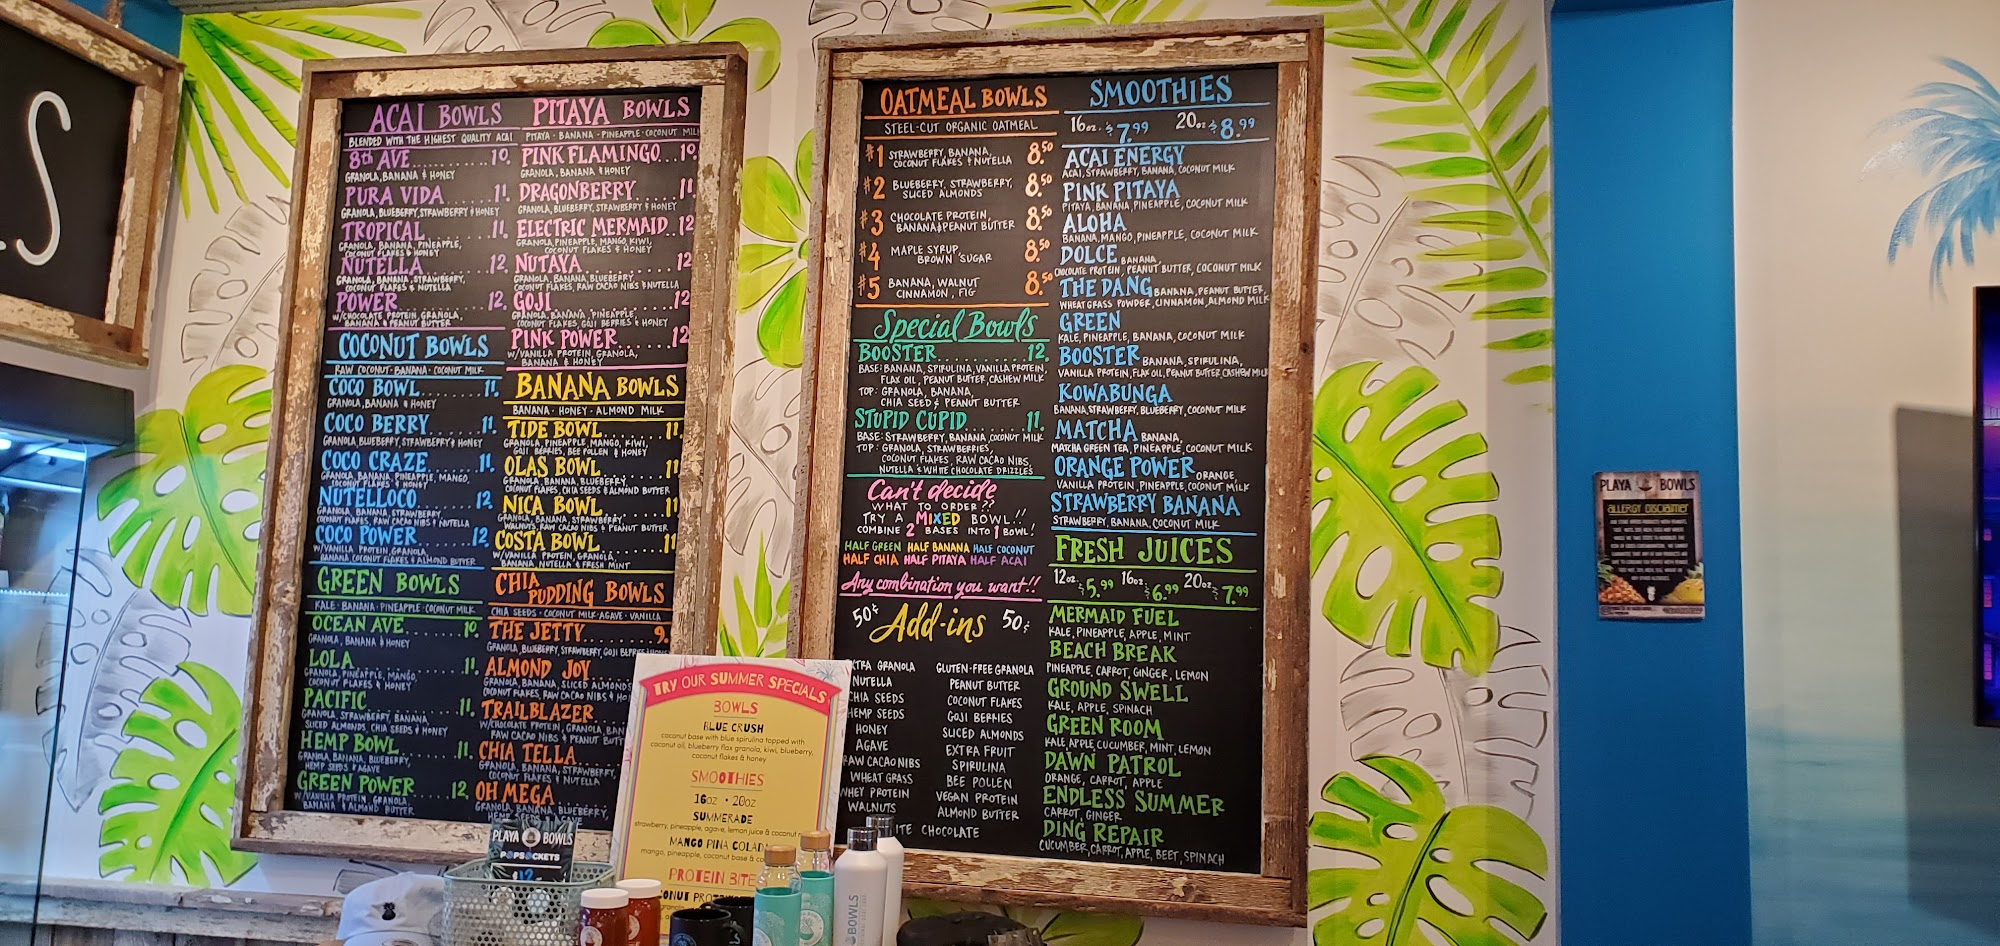 S
ACAI BOWLS
BLENDED WITH THE HIGHEST QUALITY ACAI
8th AVE..........10.
GRANOLA, BANANA & HONEY
PURA VIDA.....11.
GRANOLA, BLUEBERRY, STRAWBERRY & HONEY
TROPICAL.......11.
GRANOLA, BANANA, PINEAPPLE,
COCONUT FLAKES & HONEY
NUTELLA........12.
GRANOLA, BANANA, STRAWBERRY,
COCONUT FLAKES & NUTELLA
POWER..........12.
W/CHOCOLATE PROTEIN, GRANOLA,
BANANA & PEANUT BUTTER
COCONUT BOWLS
RAW COCONUT · BANANA · COCONUT MILK
COCO BOWL.......11.
GRANOLA, BANANA & HONEY
COCO BERRY......11.
GRANOLA, BLUEBERRY, STRAWBERRY & HONEY
COCO CRAZE......11.
GRANOLA, BANANA, PINEAPPLE, MANGO,
COCONUT FLAKES & HONEY
NUTELLOCO.......12.
GRANOLA, BANANA, STRAWBERRY,
COCONUT FLAKES, RAW CACAO NIBS & NUTELLA
COCO POWER......12.
W/VANILLA PROTEIN, GRANOLA,
BANANA COCONUT FLAKES & ALMOND BUTTER
GREEN BOWLS
KALE · BANANA · PINEAPPLE · COCONUT MILK
OCEAN AVE.......10.
GRANOLA, BANANA & HONEY
LOLA............11.
GRANOLA, PINEAPPLE, MANGO,
COCONUT FLAKES & HONEY
PACIFIC.........11.
GRANOLA, STRAWBERRY, BANANA,
SLICED ALMONDS, CHIA SEEDS & HONEY
HEMP BOWL.......11.
GRANOLA, BANANA, BLUEBERRY,
HEMP SEEDS & AGAVE
GREEN POWER.....12.
W/VANILLA PROTEIN, GRANOLA,
BANANA & ALMOND BUTTER
PITAYA BOWLS
PITAYA · BANANA · PINEAPPLE · COCONUT MILK
PINK FLAMINGO...10.
GRANOLA, BANANA & HONEY
DRAGONBERRY.....11.
GRANOLA, BLUEBERRY, STRAWBERRY & HONEY
ELECTRIC MERMAID..12
GRANOLA, PINEAPPLE, MANGO, KIWI,
COCONUT FLAKES & HONEY
NUTAYA..........12
GRANOLA, BANANA, BLUEBERRY,
COCONUT FLAKES, RAW CACAO NIBS & NUTELLA
GOJI............12
GRANOLA, BANANA, PINEAPPLE,
COCONUT FLAKES, GOJI BERRIES & HONEY
PINK POWER......12
W/VANILLA PROTEIN, GRANOLA,
BANANA & HONEY
BANANA BOWLS
BANANA · HONEY · ALMOND MILK
TIDE BOWL.......11.
GRANOLA, PINEAPPLE, MANGO, KIWI,
GOJI BERRIES, BEE POLLEN & HONEY
OLAS BOWL.......11
GRANOLA, BANANA, BLUEBERRY,
COCONUT FLAKES, CHIA SEEDS & ALMOND BUTTER
NICA BOWL.......11
GRANOLA, BANANA, STRAWBERRY,
WALNUTS, RAW CACAO NIBS & PEANUT BUTTER
COSTA BOWL......11
W/VANILLA PROTEIN, GRANOLA,
BANANA, NUTELLA & FRESH MINT
CHIA PUDDING BOWLS
CHIA SEEDS · COCONUT MILK · AGAVE · VANILLA
THE JETTY.......9.
GRANOLA, BLUEBERRY, STRAWBERRY, GOJI BERRIES
ALMOND JOY
GRANOLA, BANANA, SLICED ALMONDS
COCONUT FLAKES, RAW CACAO NIBS & HO
TRAILBLAZER
W/CHOCOLATE PROTEIN, GRANOLA, BAN
RAW CACAO NIBS & PEANUT BUTT
CHIA TELLA
GRANOLA, BANANA, STRAWBERRY,
COCONUT FLAKES & NUTELLA
OH MEGA
GRANOLA, BANANA, BLUEBERRY,
HEMP SEEDS & AGAVE
OATMEAL BOWLS
STEEL-CUT ORGANIC OATMEAL
#1 STRAWBERRY, BANANA, 8.50
COCONUT FLAKES & NUTELLA
#2 BLUEBERRY, STRAWBERRY, 8.50
SLICED ALMONDS
#3 CHOCOLATE PROTEIN, 8.50
BANANA & PEANUT BUTTER
#4 MAPLE SYRUP, 8.50
BROWN SUGAR
#5 BANANA, WALNUT 8.50
CINNAMON, FIG
Special Bowls
BOOSTER...........12.
BASE: BANANA, SPIRULINA, VANILLA PROTEIN,
FLAX OIL, PEANUT BUTTER, CASHEW MILK
TOP: GRANOLA, BANANA,
CHIA SEED & PEANUT BUTTER
STUPID CUPID......11.
BASE: STRAWBERRY, BANANA, COCONUT MILK
TOP: GRANOLA, STRAWBERRIES,
COCONUT FLAKES, RAW CACAO NIBS,
NUTELLA & WHITE CHOCOLATE DRIZZLES
Can't decide
WHAT TO ORDER??
TRY A MIXED BOWL!!
COMBINE 2 BASES INTO 1 BOWL!
HALF GREEN HALF BANANA HALF COCONUT
HALF CHIA HALF PITAYA HALF ACAI
Any combination you want!!
50¢ Add-ins 50¢
XTRA GRANOLA
NUTELLA
CHIA SEEDS
HEMP SEEDS
HONEY
AGAVE
RAW CACAO NIBS
WHEAT GRASS
WHEY PROTEIN
WALNUTS
GLUTEN-FREE GRANOLA
PEANUT BUTTER
COCONUT FLAKES
GOJI BERRIES
SLICED ALMONDS
EXTRA FRUIT
SPIRULINA
BEE POLLEN
VEGAN PROTEIN
ALMOND BUTTER
ITE CHOCOLATE
SMOOTHIES
16oz. $7.99 20oz $8.99
ACAI ENERGY
ACAI, STRAWBERRY, BANANA, COCONUT MILK
PINK PITAYA
PITAYA, BANANA, PINEAPPLE, COCONUT MILK
ALOHA
BANANA, MANGO, PINEAPPLE, COCONUT MILK
DOLCE BANANA,
CHOCOLATE PROTEIN, PEANUT BUTTER, COCONUT MILK
THE DANG BANANA, PEANUT BUTTER,
WHEAT GRASS POWDER, CINNAMON, ALMOND MILK
GREEN
KALE, PINEAPPLE, BANANA, COCONUT MILK
BOOSTER BANANA, SPIRULINA,
VANILLA PROTEIN, FLAX OIL, PEANUT BUTTER, CASHEW MILK
KOWABUNGA
BANANA, STRAWBERRY, BLUEBERRY, COCONUT MILK
MATCHA BANANA,
MATCHA GREEN TEA, PINEAPPLE, COCONUT MILK
ORANGE POWER ORANGE,
VANILLA PROTEIN, PINEAPPLE, COCONUT MILK
STRAWBERRY BANANA
STRAWBERRY, BANANA, COCONUT MILK
FRESH JUICES
12oz. $5.99 16oz $6.99 20oz $7.99
MERMAID FUEL
KALE, PINEAPPLE, APPLE, MINT
BEACH BREAK
PINEAPPLE, CARROT, GINGER, LEMON
GROUND SWELL
KALE, APPLE, SPINACH
GREEN ROOM
KALE, APPLE, CUCUMBER, MINT, LEMON
DAWN PATROL
ORANGE, CARROT, APPLE
ENDLESS SUMMER
CARROT, GINGER
DING REPAIR
CUCUMBER, CARROT, APPLE, BEET, SPINACH
TRY OUR SUMMER SPECIALS
BOWLS
BLUE CRUSH
coconut base with blue spirulina topped with
coconut oil, blueberry flax granola, kiwi, blueberry,
coconut flakes & honey
SMOOTHIES
16OZ · 20OZ
SUMMERADE
strawberry, pineapple, agave, lemon juice & coconut
MANGO PINA COLADA
mango, pineapple, coconut base & co
PROTEIN BITE
CONUT PRO
PLAYA BOWLS
POPSOCKETS
$12
BOWLS
PLAYA BOWLS
ALLERGY DISCLAIMER